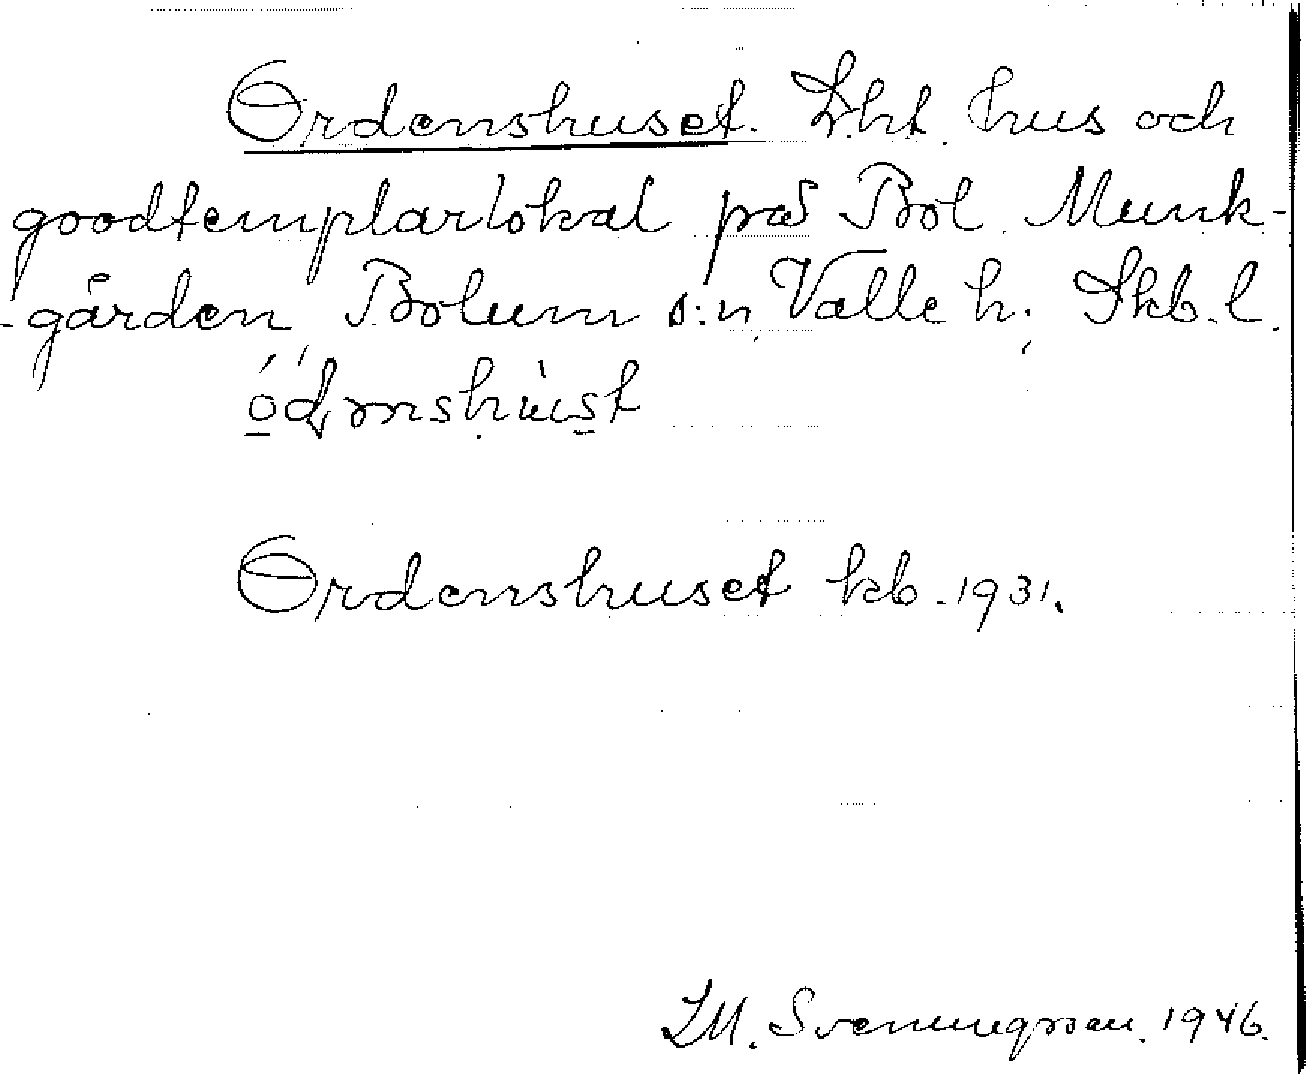 Ordenshuset. Lht. hus och
goodtemplarlokal på Bol. Munk-
-gården Bolum s:n Valle h. Skb. l.
Ordenshuset kb. 1931.
1946.